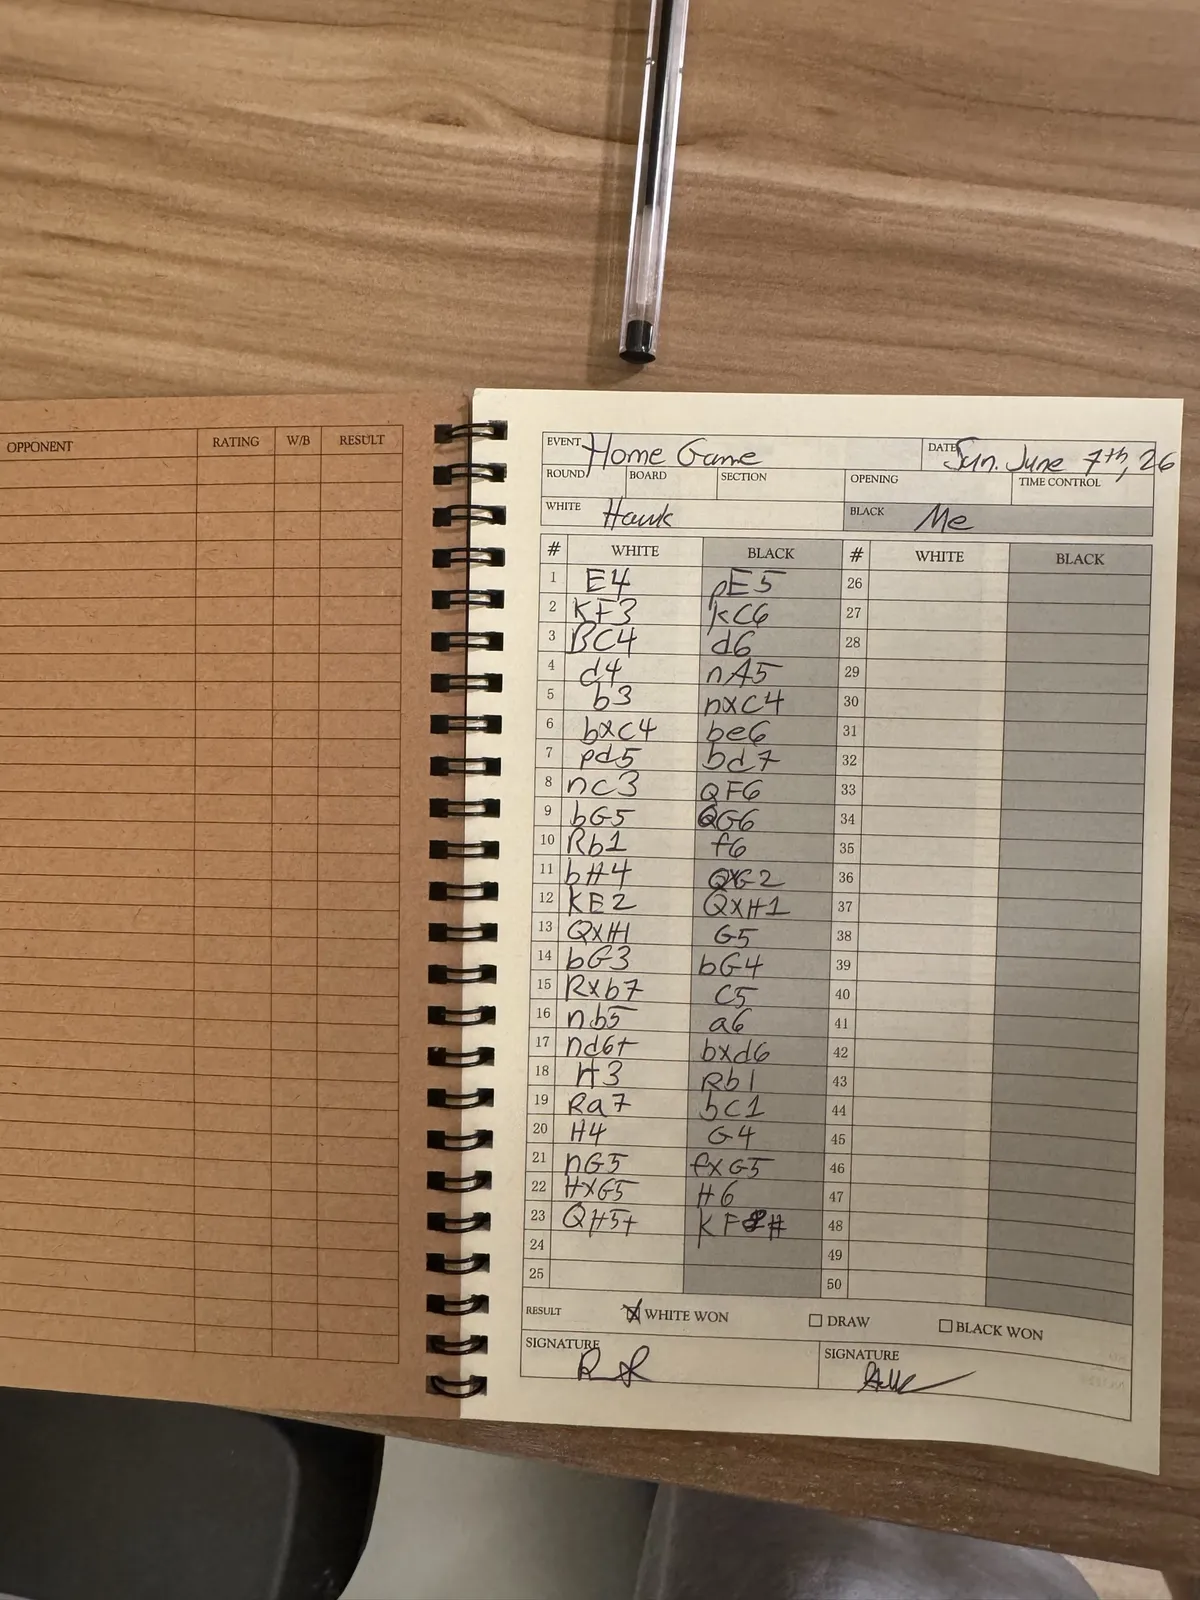 OPPONENT RATING W/B RESULT
EVENT Home Game DATE Sun. June 7th, 26
ROUND BOARD SECTION OPENING TIME CONTROL
WHITE Hawk BLACK Me
# WHITE BLACK # WHITE BLACK
1 E4 pE5 26
2 KF3 kC6 27
3 BC4 d6 28
4 d4 nA5 29
5 b3 nxC4 30
6 bxC4 be6 31
7 pd5 bd7 32
8 nc3 QF6 33
9 bG5 QG6 34
10 Rb1 f6 35
11 bH4 QxG2 36
12 KE2 QxH1 37
13 QxH1 G5 38
14 bG3 bG4 39
15 Rxb7 C5 40
16 nb5 a6 41
17 nd6+ bxd6 42
18 H3 Rb1 43
19 Ra7 bC1 44
20 H4 G4 45
21 nG5 fxG5 46
22 HxG5 H6 47
23 QH5+ KF8# 48
24 49
25 50
RESULT WHITE WON DRAW BLACK WON
SIGNATURE SIGNATURE